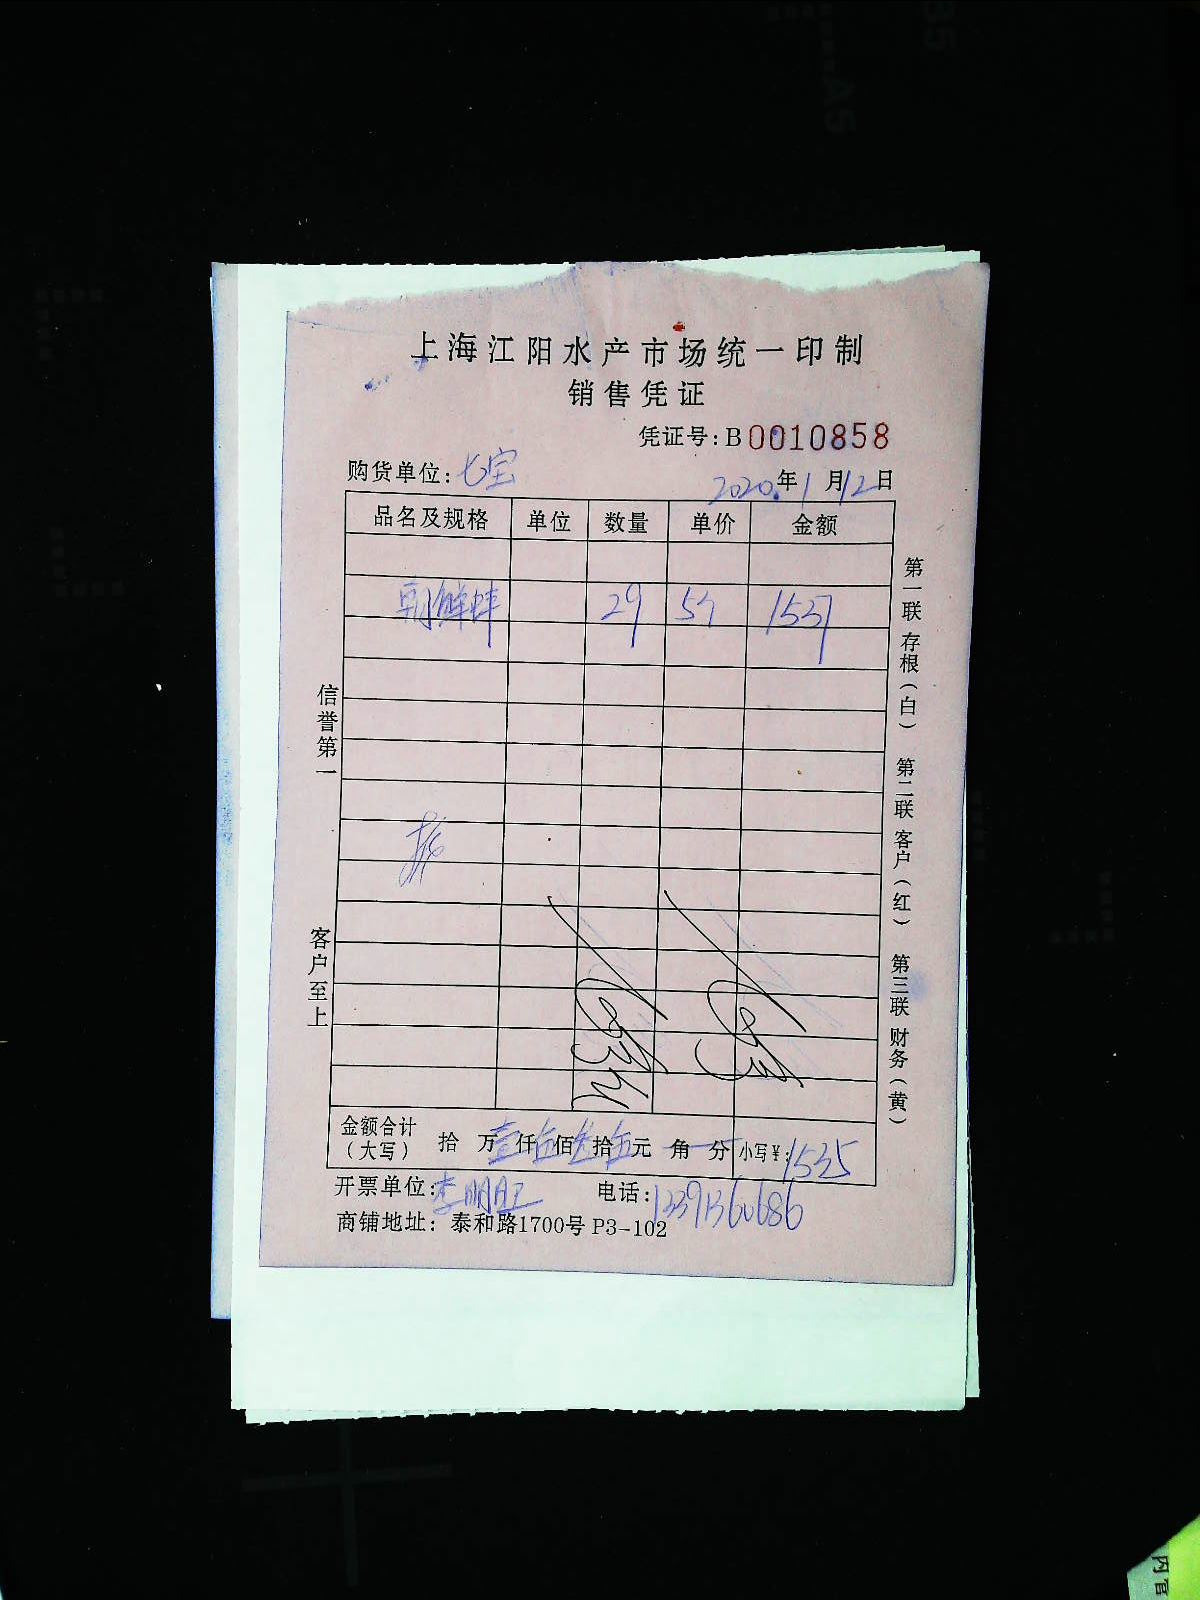 上海江阳水产市场统一印制
销售凭证
凭证号:B0010858
购货单位:七宝 2020年1月12日
品名及规格 单位 数量 单价 金额
朝鲜蚌 29 53 1537
信誉第一
客户至上
第一联存根(白) 第二联客户(红) 第三联财务(黄)
金额合计(大写) 拾万壹仟伍佰叁拾伍元角分 小写¥:1535
开票单位:李明旺 电话:13391360686
商铺地址:泰和路1700号P3-102
内官